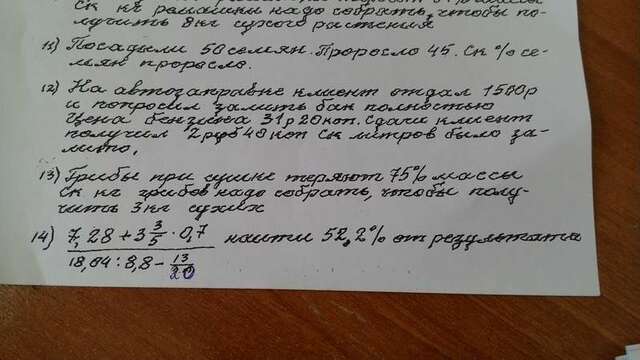 ск кг ромашки надо собрать, чтобы по-
лучить 8 кг сухого растения
11) Посадили 50 семян. Проросло 45. Ск % се-
мян проросло.
12) На автозаправке клиент отдал 1500р
и попросил залить бак полностью
Цена бензина 31р 20коп. Сдачи клиент
получил 2 руб 40 коп Ск литров было за-
лито.
13) Грибы при сушке теряют 75% массы
Ск кг грибов надо собрать, чтобы полу-
чить 3 кг сухих
14) 7,28 + 3 3/5 · 0,7 найти 52,2% от результата
18,04 : 8,8 - 13/20